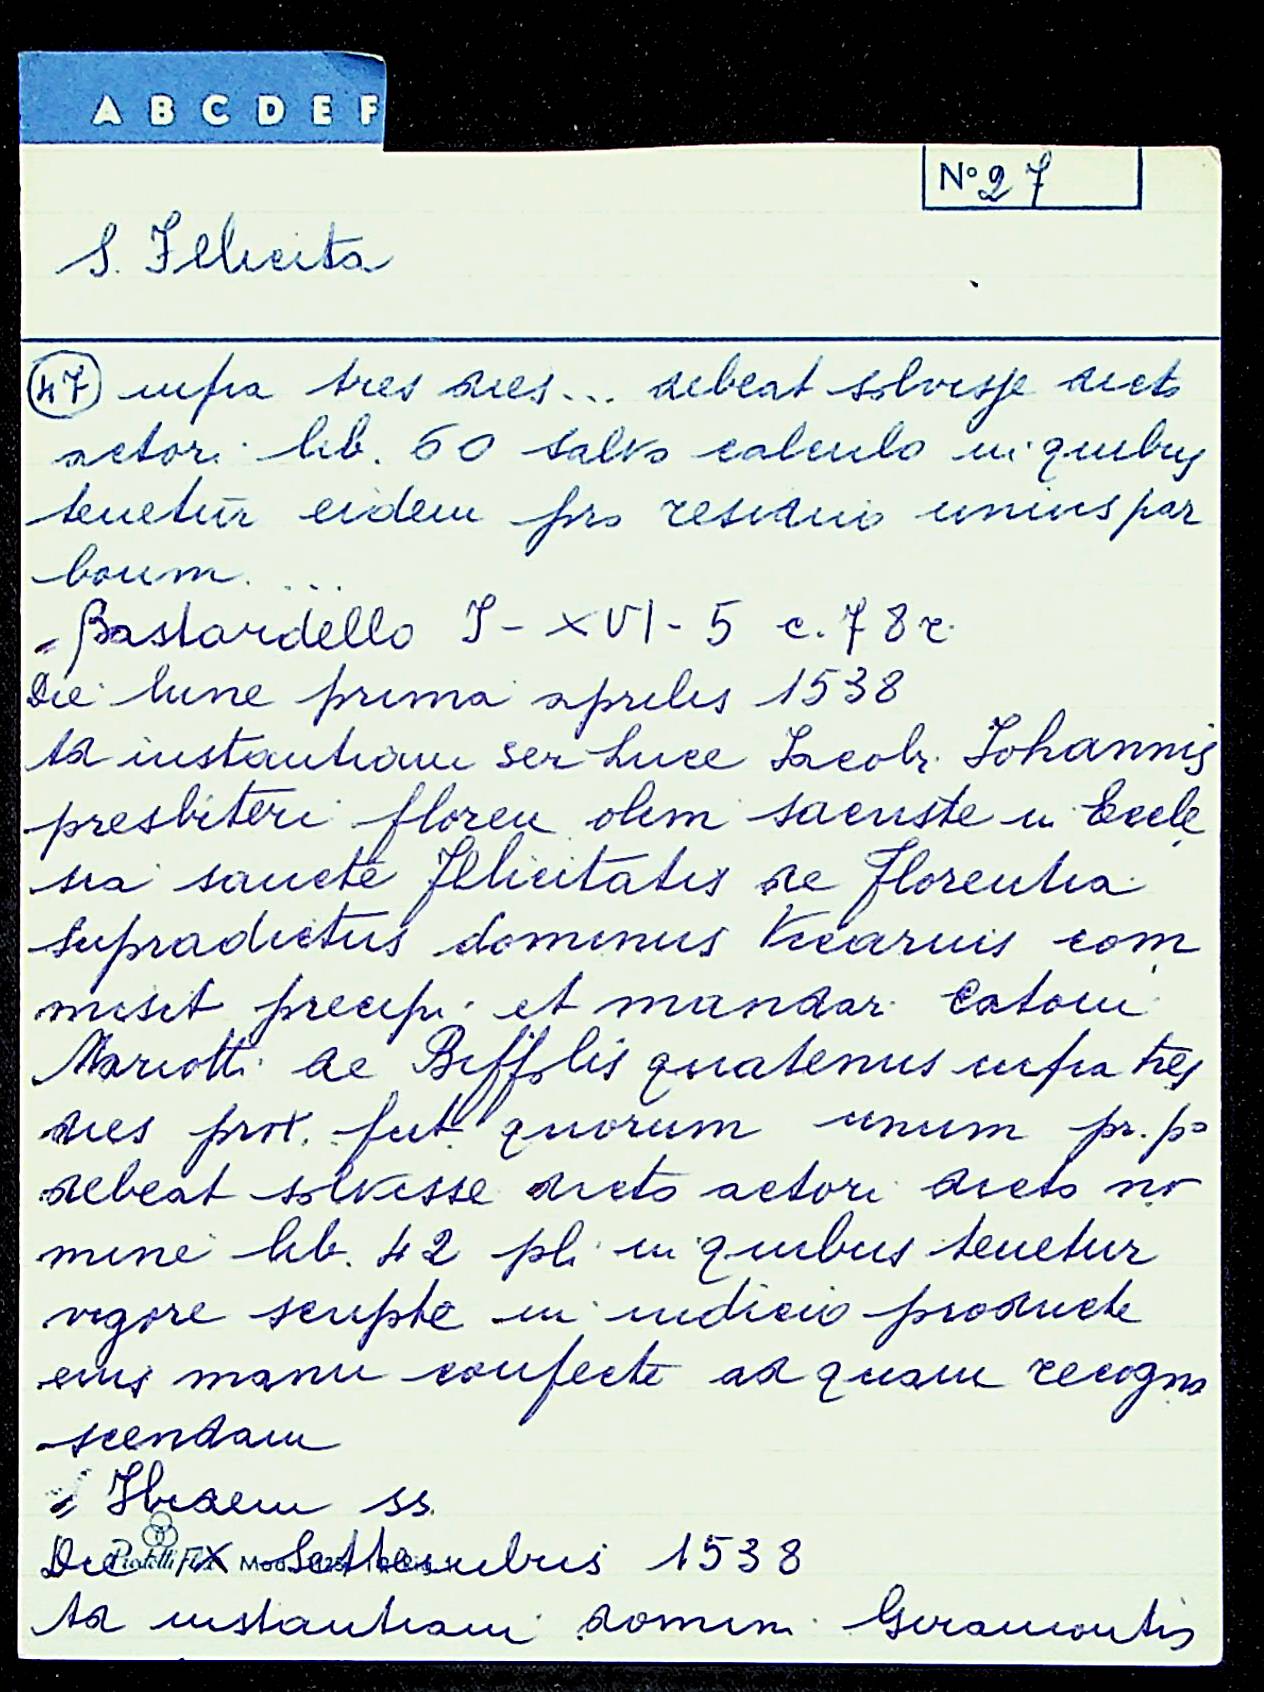 A B C D E F
N° 27
S. Felicita
47 infra tres dies... debeat solvisse dicto
actori lib. 60 salvo calculo in quibus
tenetur eidem pro residuo unius par
boum. ...
Bastardello I - XVI - 5 c. 78 r.
Die lune prima aprilis 1538
Ad instantiam ser Luce Iacobi Iohannis
presbiteri floren olim sacriste in Eccle
sia sancte Felicitatis de Florentia
supradictus dominus Vicarius com
misit precipi et mandari Catoni
Mariotti de Biffolis quatenus infra tres
dies prox. fut. quorum unum pr. p°
debeat solvisse dicto actori dicto no
mine lib. 42 pli in quibus tenetur
vigore scripte in iudicio producte
eius manu confecte ad quam recogno
scendam
Ibidem ss.
Die IX Settembris 1538
Ad instantiam domini Geramontis